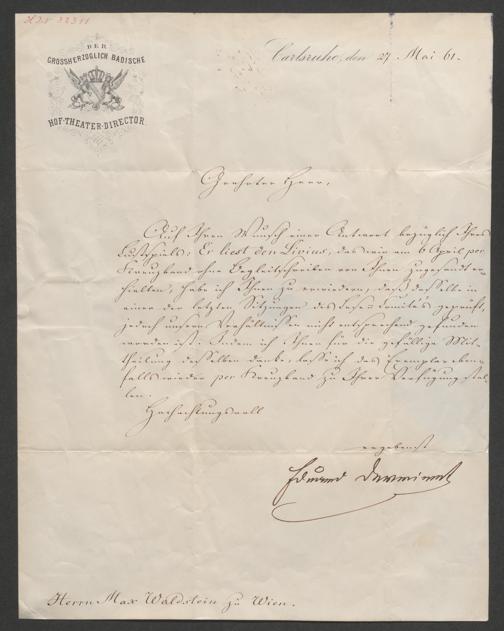 DER
GROSSHERZOGLICH BADISCHE
HOF-THEATER-DIRECTOR
Carlsruhe, den 27. Mai 61.
Geehrter Herr,
Auf Ihren Wunsch einer Antwort bezüglich Ihres
Lustspiels: Er liest den Livius, das wir am 6 April per
Kreuzband ohne Begleitschreiben von Ihnen zugesandt er-
hielten, habe ich Ihnen zu erwiedern, daß dasselbe in
einer der letzten Sitzungen des Lese-Comités geprüft,
jedoch unsern Verhältnissen nicht entsprechend gefunden
worden ist. Indem ich Ihnen für die gefällige Mit-
theilung desselben danke, lasse ich das Exemplar eben-
falls wieder per Kreuzband zu Ihrer Verfügung stel-
len.
Hochachtungsvoll
ergebenst
Eduard Devrient
Herrn Max Waldstein zu Wien.